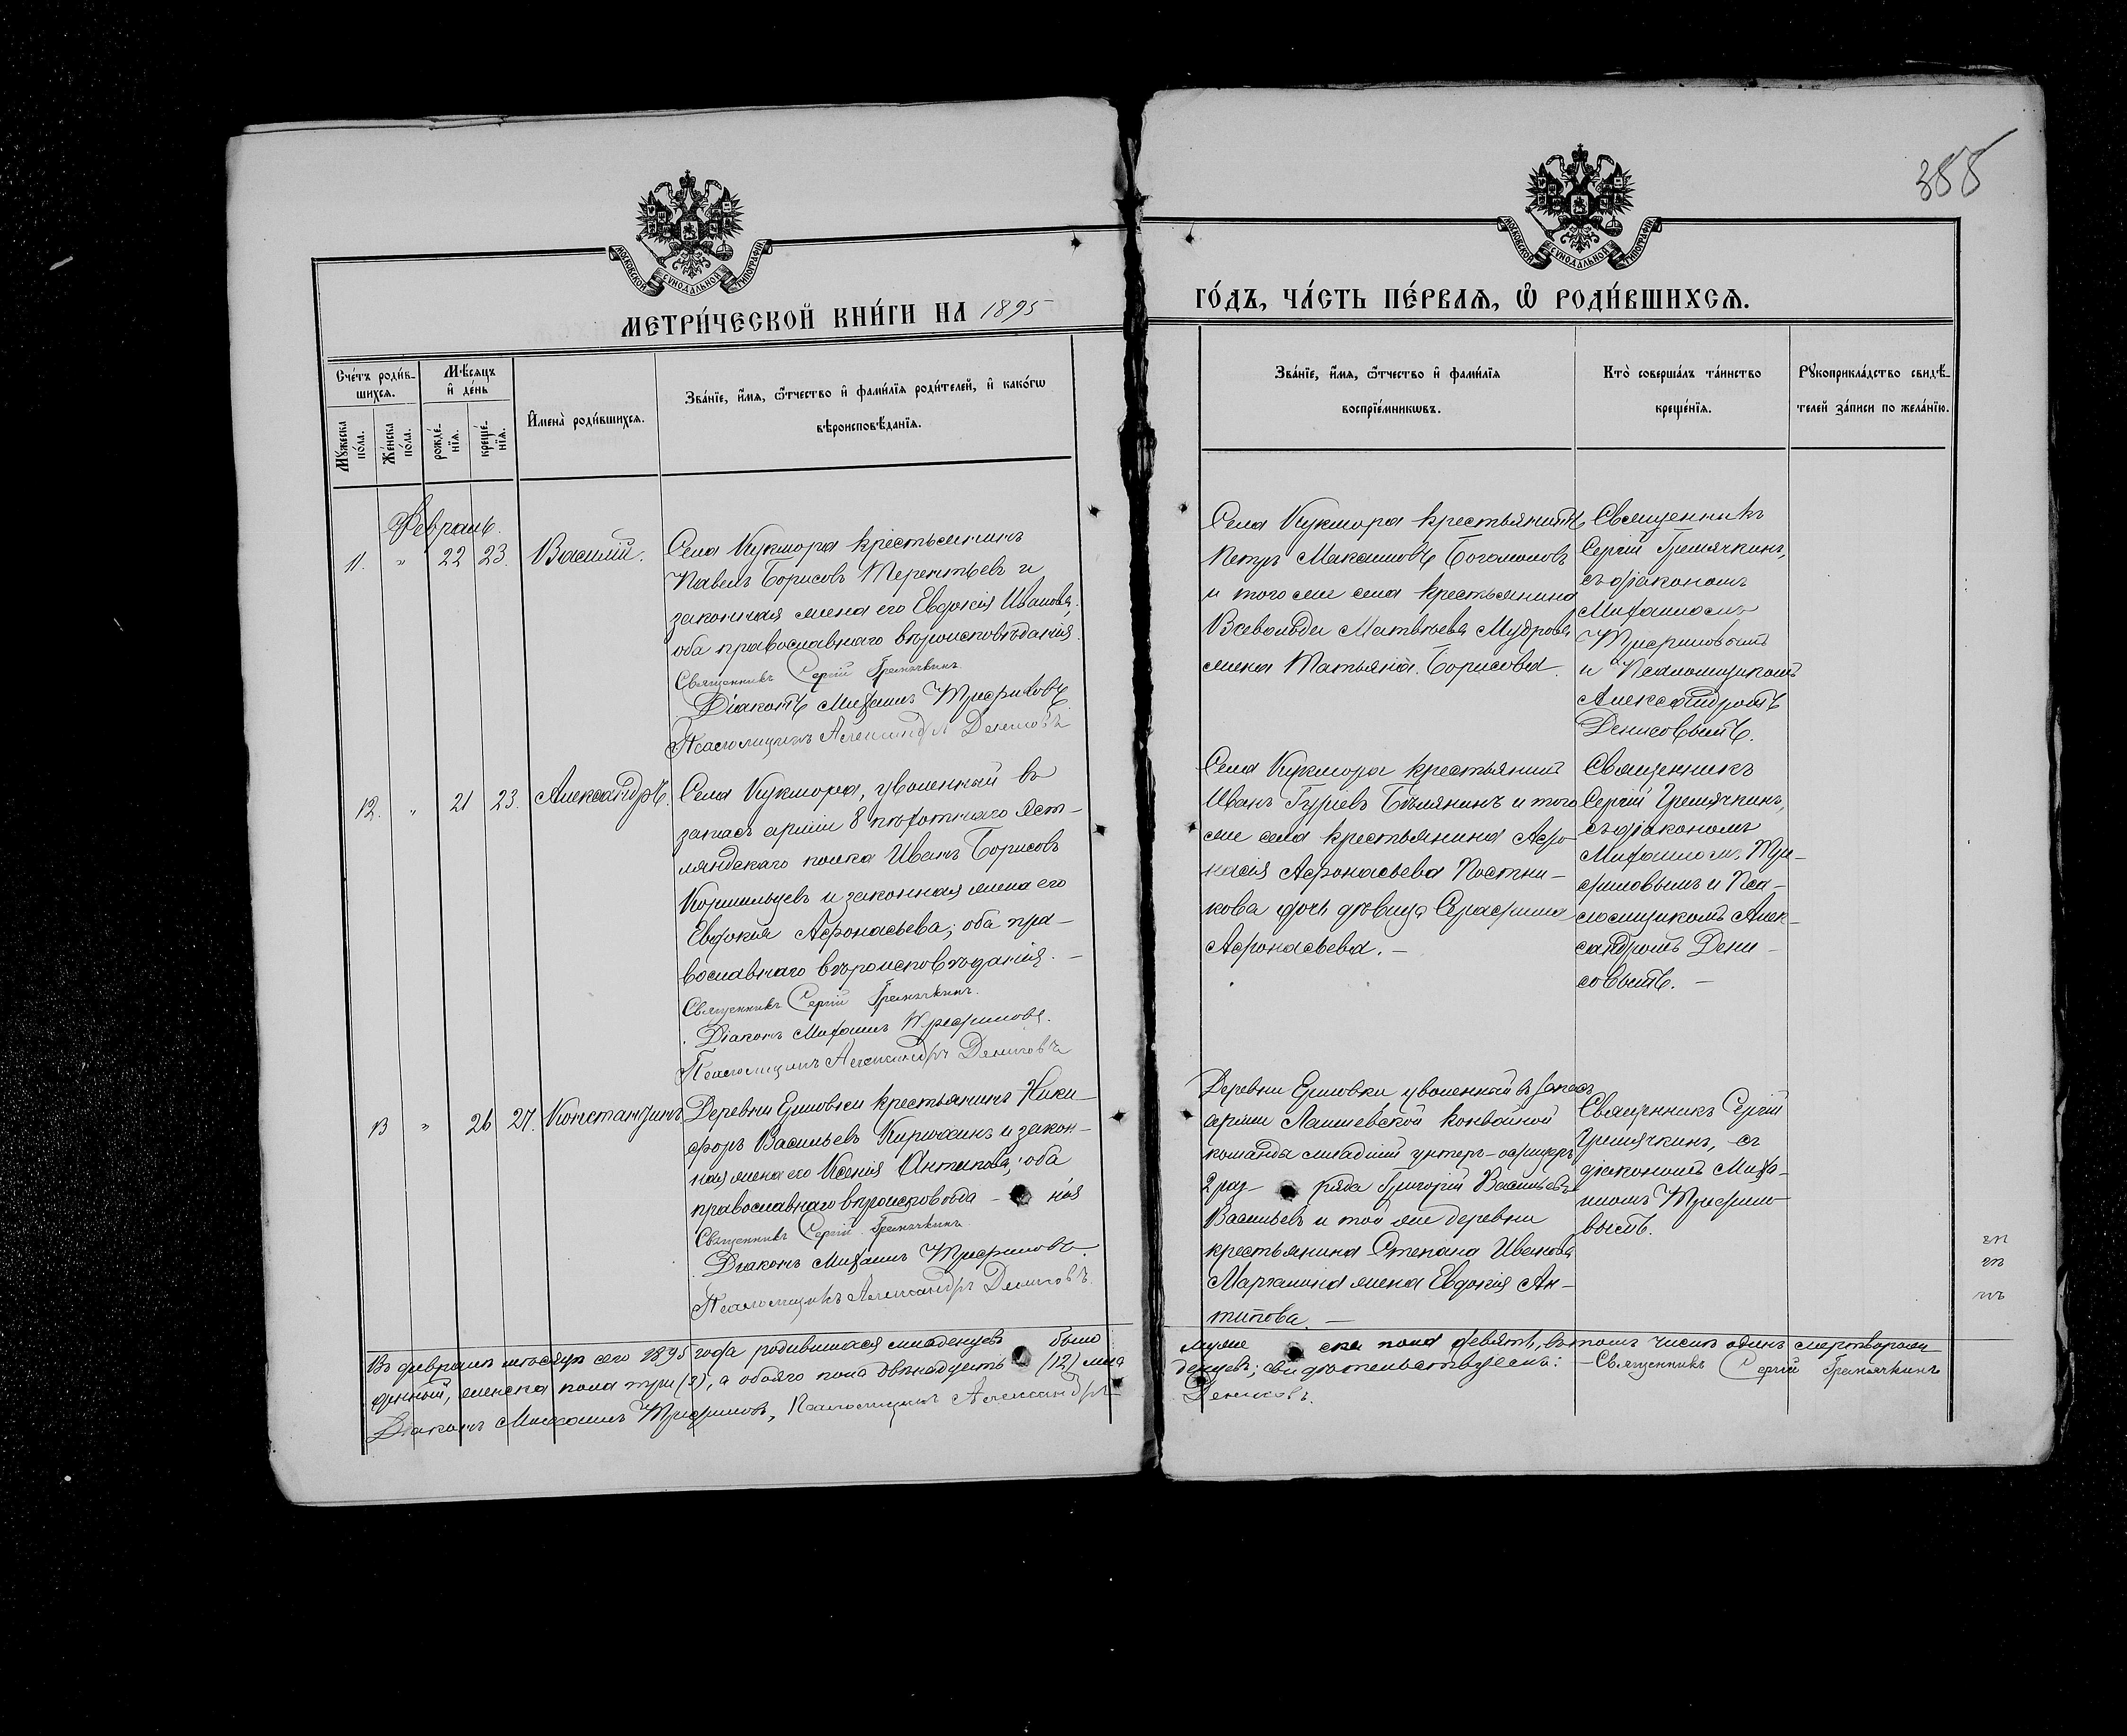 388
МОСКОВСКОЙ СѴНОДАЛЬНОЙ ТИПОГРАФІИ
МОСКОВСКОЙ СѴНОДАЛЬНОЙ ТИПОГРАФІИ
МЕТРИ́ЧЕСКОЙ КНИ́ГИ НА 1895
ГО́ДЪ, ЧА́СТЬ ПЕ́РВАѦ, Ѡ҆ РОДИ́ВШИХСѦ.
Сче́тъ роди́в-
шихсѧ.
Мꙋ́жеска
по́ла.
Же́нска
по́ла.
Мѣ́сѧцъ
и҆ де́нь
рожде́-
нїѧ.
креще́-
нїѧ.
И҆мена̀ роди́вшихсѧ.
Зва́нїе, и҆́мѧ, ѻ҆́тчество и҆ фами́лїѧ роди́телей, и҆ како́гѡ
вѣроисповѣ́данїѧ.
Зва́нїе, и҆́мѧ, ѻ҆́тчество и҆ фами́лїѧ
воспрїе́мникѡвъ.
Кто̀ соверша́лъ та́инство
креще́нїѧ.
Рꙋкоприкла́дство свидѣ́-
телей за́писи по жела́нїю.
Февраль.
11. " 22 23. Василій.
Села Кукмора крестьянинъ
Павелъ Борисовъ Терентьевъ и
законная жена его Евдокія Иванова,
оба православнаго вѣроисповѣданія.
Священникъ Сергій Гремячкинъ.
Діаконъ Михаилъ Трифиловъ.
Псаломщикъ Александръ Денисовъ
Села Кукмора крестьянинъ
Петръ Максимовъ Богомоловъ
и того же села крестьянина
Матвѣева Мудрова
жена Татьяна Борисова.
Священникъ
Сергій Гремячкинъ,
съ діакономъ
Михаиломъ
Трифиловымъ
и Псаломщикомъ
Александромъ
Денисовымъ.
12. " 21 23. Александръ.
Села Кукмора, уволенный въ
запасъ арміи 8 пѣхотнаго Эст-
ляндскаго полка Иванъ Борисовъ
Кормильцевъ и законная жена его
Евдокія Афонасьева; оба пра-
вославнаго вѣроисповѣданія. —
Священникъ Сергій Гремячкинъ.
Діаконъ Михаилъ Трифиловъ.
Псаломщикъ Александръ Денисовъ
Села Кукмора крестьянинъ
Иванъ Гурьевъ и того
же села крестьянина Афо-
насія Афонасьева Постни-
кова дочь дѣвица Серафима
Афонасьева. —
Священникъ
Сергій Гремячкинъ,
съ діакономъ
Михаиломъ Три-
филовымъ и Пса-
ломщикомъ Алек-
сандромъ Дени-
совымъ. —
13 " 26 27. Константинъ
Деревни Ершовки крестьянинъ Ники-
форъ Васильевъ Кирюхинъ и закон-
ная жена его Ксенія Антипова; оба
православнаго вѣроисповѣда - нія
Священникъ Сергій Гремячкинъ.
Діаконъ Михаилъ Трифиловъ.
Псаломщикъ Александръ Денисовъ.
Деревни Ершовки уволенный въ запасъ
арміи Лаишевской конвойной
команды младшій унтеръ-офицеръ
2 раз- ряда Григорій Васильевъ
Васильевъ и той же деревни
крестьянина Степана Иванова
жена Евдокія Ан-
типова. —
Священникъ Сергій
Гремячкинъ, съ
діакономъ Миха-
иломъ Трифило-
вымъ.
Въ февралѣ мѣсяцѣ сего 1895 года родившихся младенцевъ было муже ска пола девять, въ томъ числѣ одинъ мертворож
денный, женска пола три (3), а обоего пола двѣнадцать (12) мла денцевъ; свидѣтельствуемъ: — Священникъ Сергій Гремячкинъ
Діаконъ Михаилъ Трифиловъ, Псаломщикъ Александръ Денисовъ.